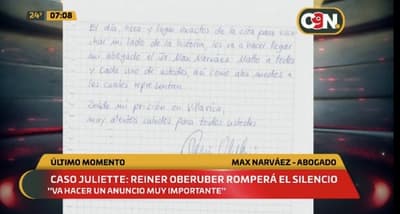 24° 07:08
C9N
El día, hora y lugar exactos de la cita para escu-
char mi lado de la historia, les va a hacer llegar
mi abogado el Dr. Max Narváez Matto a todos
y cada uno de ustedes, así como a los medios a
los cuales representan.
Desde mi prisión en Villarrica,
muy atentos saludos para todos ustedes
ÚLTIMO MOMENTO
MAX NARVÁEZ - ABOGADO
CASO JULIETTE: REINER OBERUBER ROMPERÁ EL SILENCIO
"VA HACER UN ANUNCIO MUY IMPORTANTE"